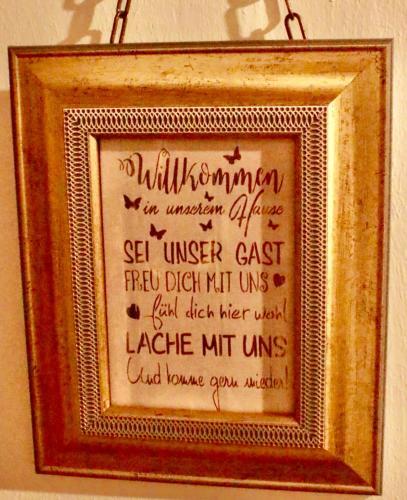 Willkommen
in unserem Hause
SEI UNSER GAST
FREU DICH MIT UNS
fühl dich hier wohl
LACHE MIT UNS
Und komme gern wieder!